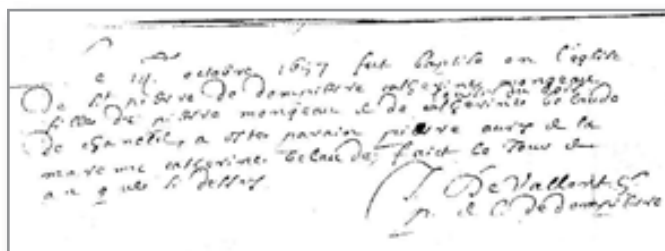 Le iiij octobre 1657 fut baptise en l'eglise
De st pierre de dompierre catherine mongeau
fille de pierre mongeau & de catherine belaude
de a este parain pierre & la
mareine catherine belaude, faict le Jour &
an que si dessus
De Vallont
p. & C. de dompierre